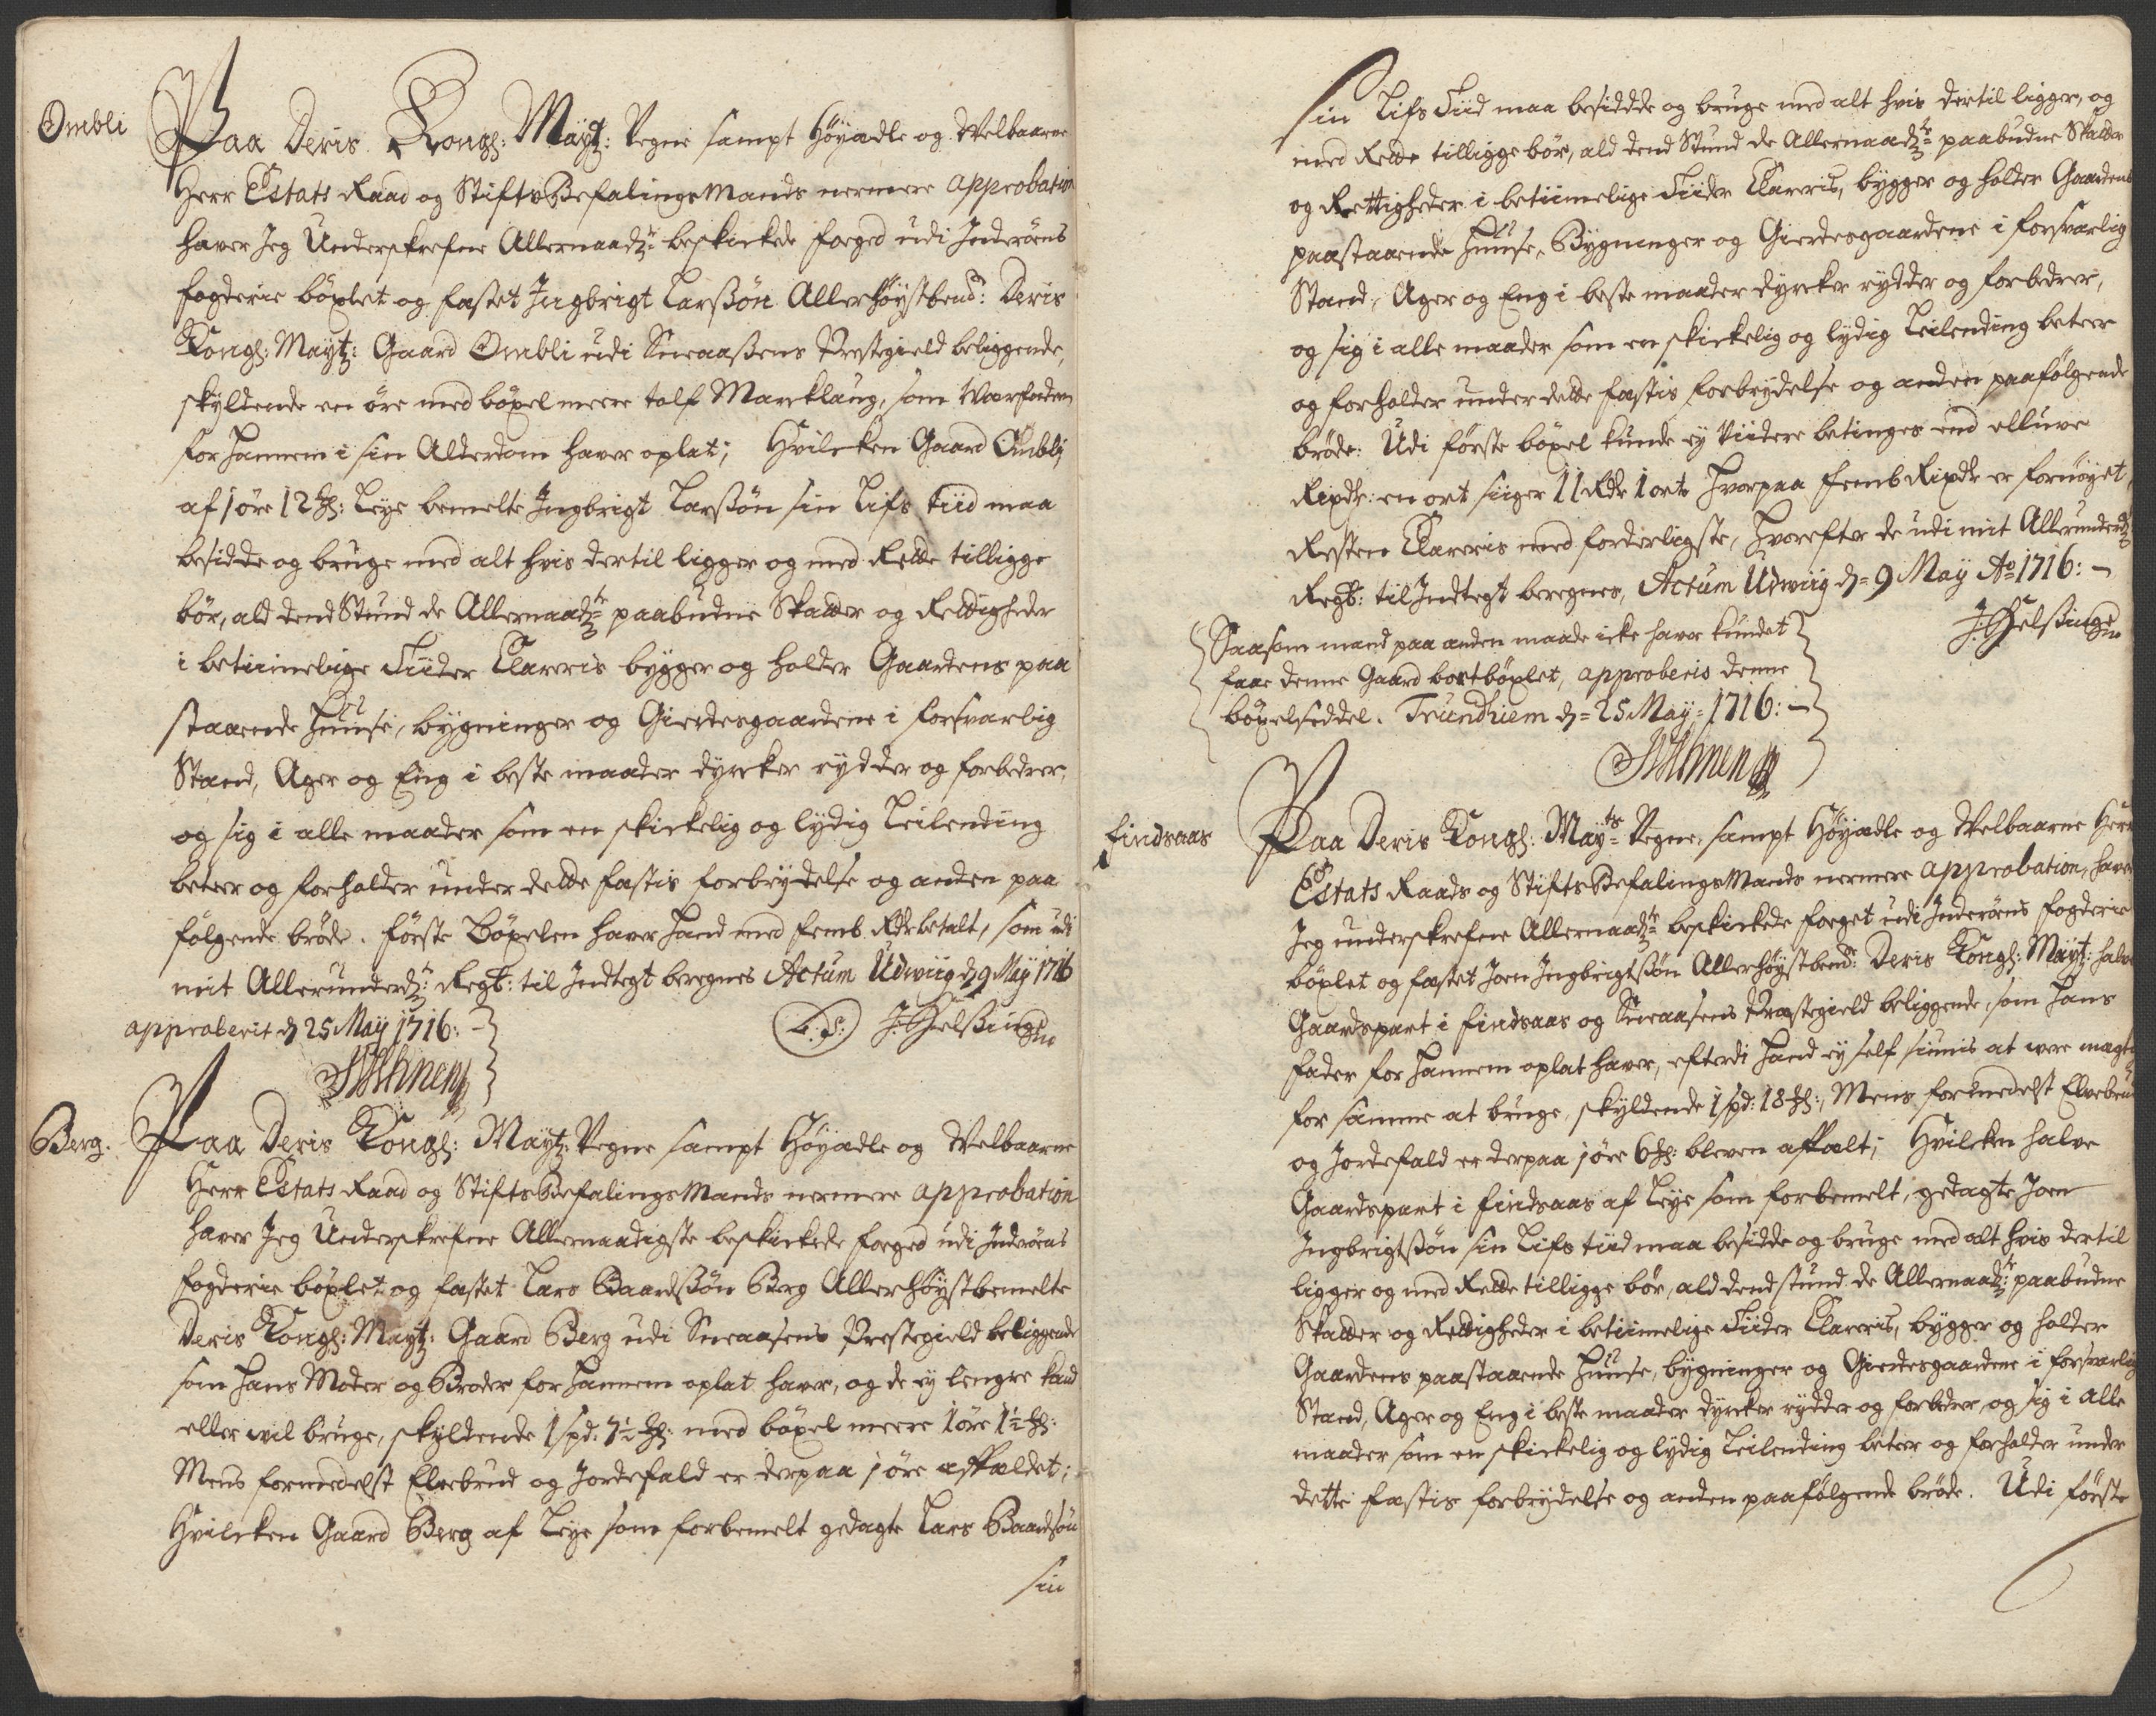 Ombli
Paa Deris Kongl: Maytz: Vegne sampt Høyædle og Welbaarne
Herr Etats Raad og StiftsBefalingsMands nermere approbation
haver Jeg Underskrefne Allernaadst beskickede foeged udi Inderøens
fogderie böxlet og fæstet Ingbrigt Larssøn Allerhöystbemd: Deris
Kongl: Maytz: Gaard Ombli udi Sneaassens Prestegield beliggende,
skyldende en öre med böxel meere tolf Marcklaug, som Værfaderen
for hannem i sin Alderdom haver oplat; Hvilcken Gaard Ombli
af 1 öre 12 Mkl: Leye bemelte Ingbrigt Larssøn sin Lifs tiid maa
besidde og bruge med alt hvis dertil ligger og med Rette tilligge
bör, ald dend Stund de Allernaadste paabudne Skatter og Rettigheder
i betiimelige Tiider Clareris bygger og holder Gaardens paa
staaende Huuse, bygninger og Gierdesgaardene i forsvarlig
Stand, Ager og Eng i beste maader dyrcker rydder og forbedrer,
og sig i alle maader som en skickelig og lydig Leilending
beteer og forholder under dette fæstis forbrydelse og anden paa
følgende bröde. förste Böxelen haver hand med femb Rdr betalt, som udi
mit Allerunderdst Regb: til Indtegt beregnes Actum Udwiig d 9 May 1716
approberit d 25 May 1716:
L. S: J: Helssingsn
Berg.
Paa Deris Kongl: Maytz: Vegne sampt Høyædle og Welbaarne
Herr Etats Raad og StiftsBefalingsMands nermere approbation
haver Jeg Underskrefne Allernaadigste beskickede foeged udi Inderøens
fogderie böxlet og fæstet Lars Baardssøn Berg Allerhöystbemelte
Deris Kongl: Maytz: Gaard Berg udi Sneaasens Prestegield beliggende
som hans Moder og Broder for hannem oplat haver, og de ey lengre kand
eller wil bruge, skyldende 1 spd: 7½ Mkl: med böxel meere 1 öre 1½ Mkl:
Mens formedelst Elvebrud og Jordefald er derpaa 1 öre affældet;
Hvilcken Gaard Berg af Leye som forbemelt gedagte Lars Baardsøn
sin
sin Lifs Tiid maa besidde og bruge med alt hvis dertil ligger, og
med Rette tilligge bör, ald dend Stund de Allernaadste paabudne Skatter
og Rettigheder i betiimelige Tiider Clareris, bygger og holder Gaardens
paastaaende Huuse, Bygninger og Gierdesgaardene i forsvarlig
Stand, Ager og Eng i beste maader dyrcker rydder og forbedrer,
og sig i alle maader som en skickelig og lydig Leilending beteer
og forholder under dette fæstis forbrydelse og anden paafølgende
bröde: Udi förste böxel kunde ey viidere betinges end elluve
Rixdr: en ort siiger 11 Rdr 1 ort hvorpaa femb Rixdr er fornöyet,
Resten Clareris med forderligste, hvorefter de udi mit Allerunderdst
Regb: til Indtegt beregnes, Actum Udwiig d= 9 May Ao 1716:
J: Helssingsn
Saasom mand paa anden maade icke haver kundet
faae denne Gaard bortböxlet, approberis denne
böxelseddel. Trundhiem d= 25 May= 1716:
findsaas
Paa Deris Kongl: Mayts Vegne, sampt Høyædle og Welbaarne Herr
Etats Raads og StiftsBefalingsMands nermere approbation, haver
Jeg underskrefne Allernaadste beskickede foeget udi Inderøens fogderie
böxlet og fæstet Joen Ingbrigtssøn Allerhöystbemd: Deris Kongl: Maytz: halve
Gaardspart i findsaas og Sneaasens Præstegield beliggende, som hans
fader for hannem oplat haver, efterdi hand ey self siunis at were magtig
for samme at bruge, skyldende 1 spd: 18 Mkl:, Mens formedelst Elvebrud
og Jordefald er derpaa 1 öre 6 Mkl: bleven affælt; Hvilcken halve
Gaardspart i findsaas af Leye som forbemelt, gedagte Joen
Ingbrigtssøn sin Lifs tiid maa besidde og bruge med alt hvis dertil
ligger og med Rette tilligge bör, ald dend stund de Allernaadst paabudne
Skatter og Rettigheder i betiimelige Tiider Clareris, bygger og holder
Gaardens paastaaende Huuse, bygninger og Gierdesgaardene i forsvarlig
Stand, Ager og Eng i beste maader dyrcker rydder og forbedrer, og sig i alle
maader som en skickelig og lydig Leilending beteer og forholder under
dette fæstis forbrydelse og anden paafølgende bröde. Udi förste